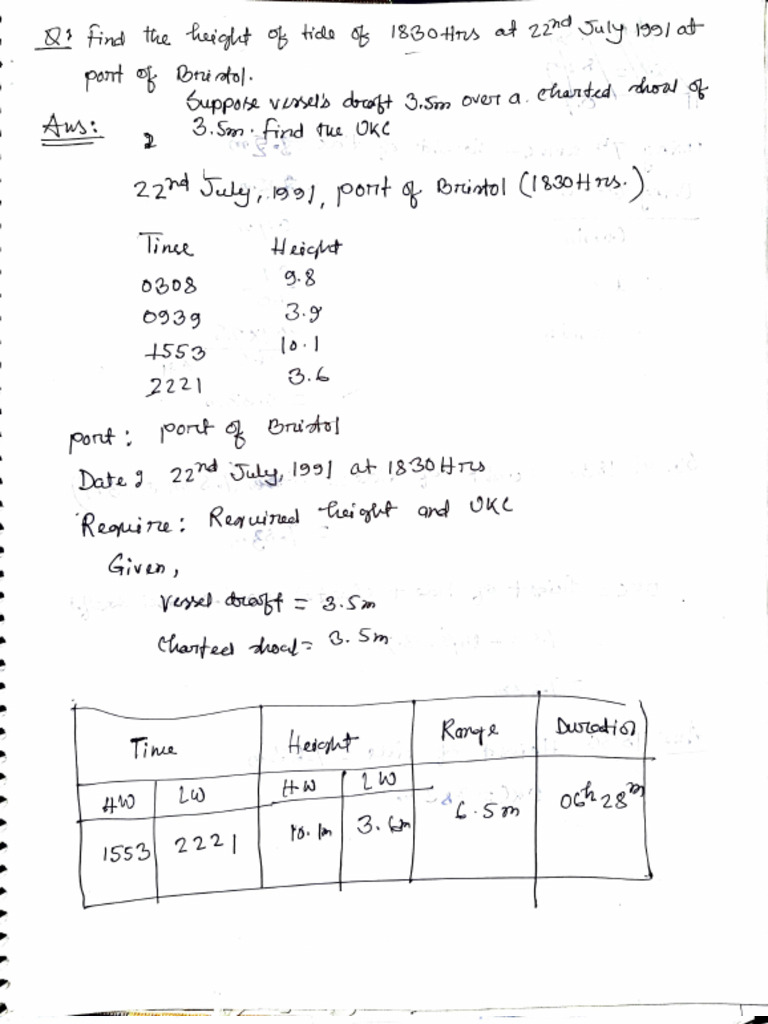 Q: find the height of tide of 1830 Hrs at 22nd July 1991 at
port of Bristol.
Suppose vessel's draft 3.5m over a charted shoal of
Ans: 3.5m. find the UKC
22nd July, 1991, port of Bristol (1830 Hrs.)
Time Height
0308 9.8
0939 3.9
1553 10.1
2221 3.6
port: port of Bristol
Date: 22nd July, 1991 at 1830 Hrs
Require: Required height and UKC
Given,
vessel draft = 3.5m
Charted shoal = 3.5m
Time Height Range Duration
HW LW HW LW
1553 2221 10.1m 3.6m 6.5m 06h 28m